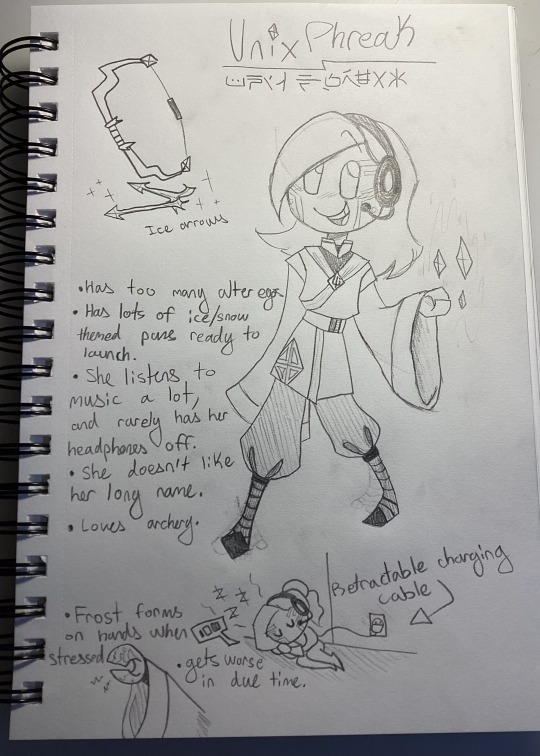 Unix Phreak
Ice arrows
• Has too many alter egos
• Has lots of ice/snow
themed puns ready to
launch.
• She listens to
music a lot,
and rarely has her
headphones off.
• She doesn't like
her long name.
• Loves archery.
Retractable charging
cable
• Frost forms
on hands when
stressed
• gets worse
in due time.
z z z z